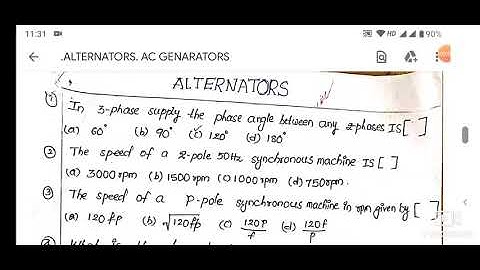 11:31
HD 90%
.ALTERNATORS. AC GENARATORS
ALTERNATORS
① In 3-phase supply the phase angle between any 2-phases IS [ ]
(a) 60° (b) 90° (c) 120° (d) 180°
② The speed of a 2-pole 50Hz synchronous machine IS [ ]
(a) 3000 rpm (b) 1500 rpm (c) 1000 rpm (d) 750 rpm.
③ The speed of a p-pole synchronous machine in rpm given by [ ]
(a) 120fp (b) √120fp (c) 120P/f (d) 120f/P